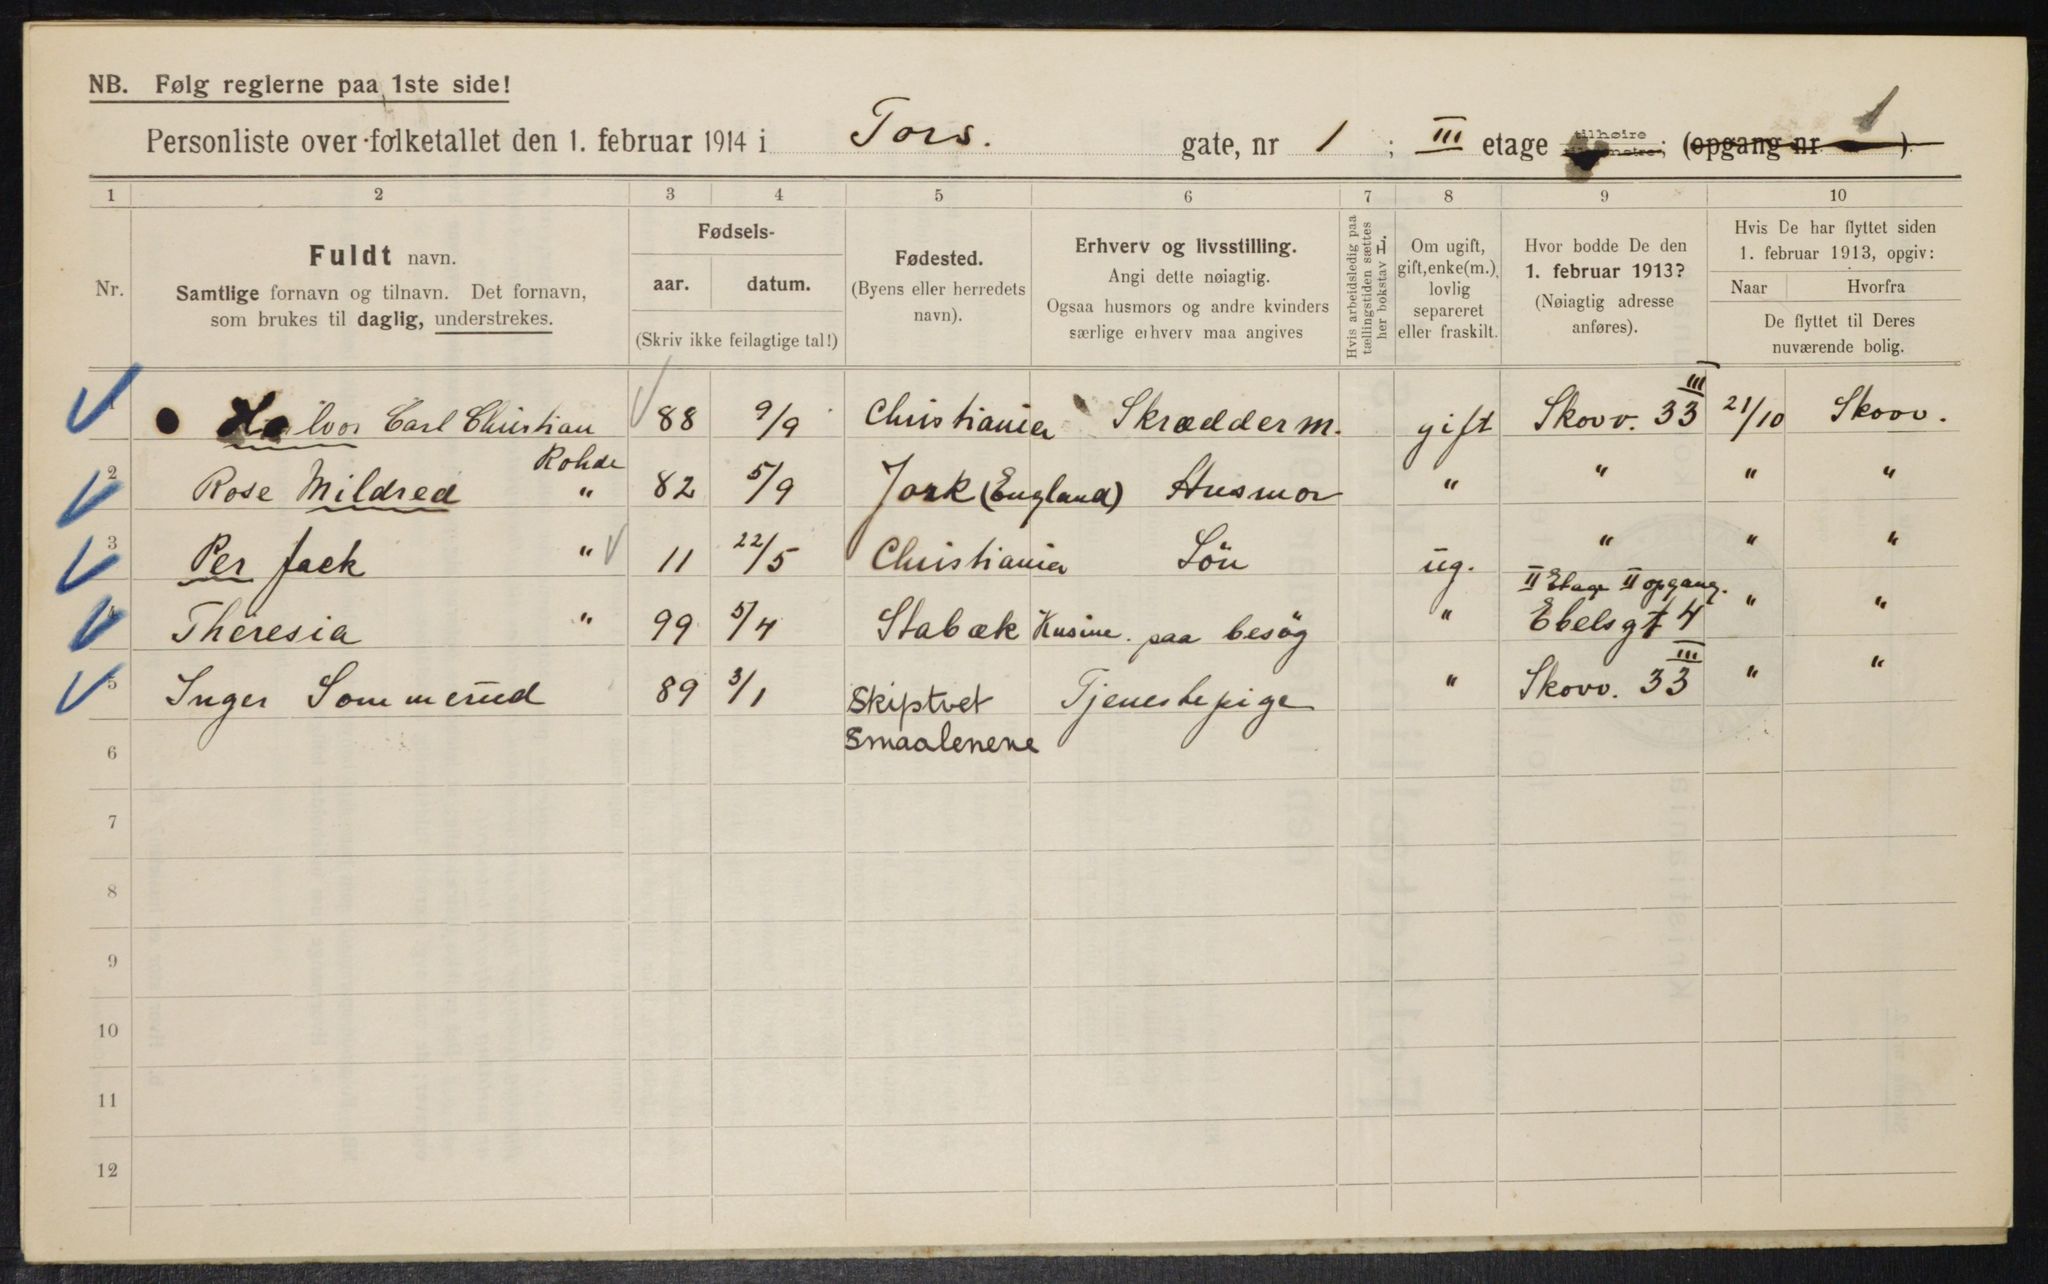 NB. Følg reglerne paa 1ste side!
Personliste over folketallet den 1. februar 1914 i Tors. gate, nr 1 ; III etage tilhøire ; (opgang nr 1)
1 2 3 4 5 6 7 8 9 10
Nr.
Fuldt navn.
Samtlige fornavn og tilnavn. Det fornavn,
som brukes til daglig, understrekes.
Fødsels-
aar. datum.
(Skriv ikke feilagtige tal!)
Fødested.
(Byens eller herredets
navn).
Erhverv og livsstilling.
Angi dette nøiagtig.
Ogsaa husmors og andre kvinders
særlige erhverv maa angives
Hvis arbeidsledig paa
tællingstiden sættes
her bokstav L.
Om ugift,
gift, enke(m.),
lovlig
separeret
eller fraskilt.
Hvor bodde De den
1. februar 1913?
(Nøiagtig adresse
anføres).
Hvis De har flyttet siden
1. februar 1913, opgiv:
Naar Hvorfra
De flyttet til Deres
nuværende bolig.
1 Halvor Carl Christian Rohde 88 9/9 Christiania Skrædderm. gift Skovv. 33 III 21/10 Skovv.
2 Rose Mildred " 82 5/9 York (England) Husmor " " " "
3 Per Jack " 11 22/5 Christiania Sön ug. " " "
4 Theresia " 99 5/4 Stabæk Kusine. paa besög " II Etage II opgang. Ebelsgt 4 " "
5 Inger Sommerud 89 3/1 Skiptvet Tjenestepige " Skovv. 33 III " "
Smaalenene
6
7
8
9
10
11
12